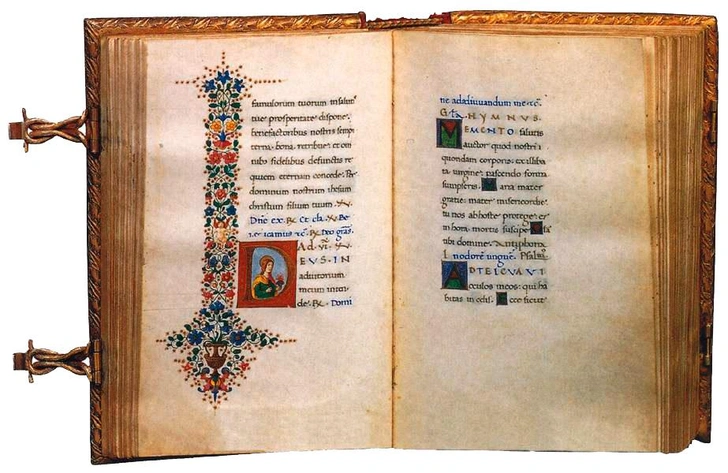 famulorum tuorum in salute
tue prosperitate dispone.
benefactoribus nostris sempi
terna bona retribue: et om
nibus fidelibus defunctis re
quiem eternam concede. Per
dominum nostrum ihesum
christum filium tuum
Dne ex. ℟ Et cla. Be
ne icamus ℟ Deo gras.
Ad vi.
DEUS IN
adiutorium
meum inten
de. ℟ Domi
ne ad adiuuandum me
Gła HYMNUS.
MEMENTO salutis
auctor quod nostri
quondam corporis ex illiba
ta uirgine nascendo formā
sumpseris. Maria mater
gratie mater misericordie
tu nos ab hoste protege et
in hora mortis suscipe
tibi domine. Antiphona
In odorē unguē. Psalm⁹
AD TE LEVAVI
oculos meos: qui ha
bitas in celis. Ecce sicut